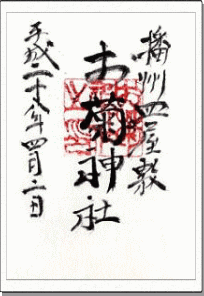 播州皿屋敷
お菊神社
平成二十八年四月二日